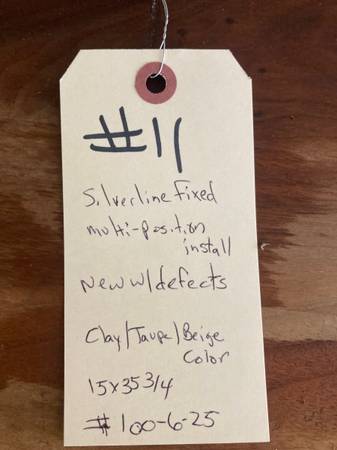 #11
Silverline Fixed
multi-position
install
New w/defects
Clay/Taupe/Beige
Color
15x35 3/4
# 100-6-25